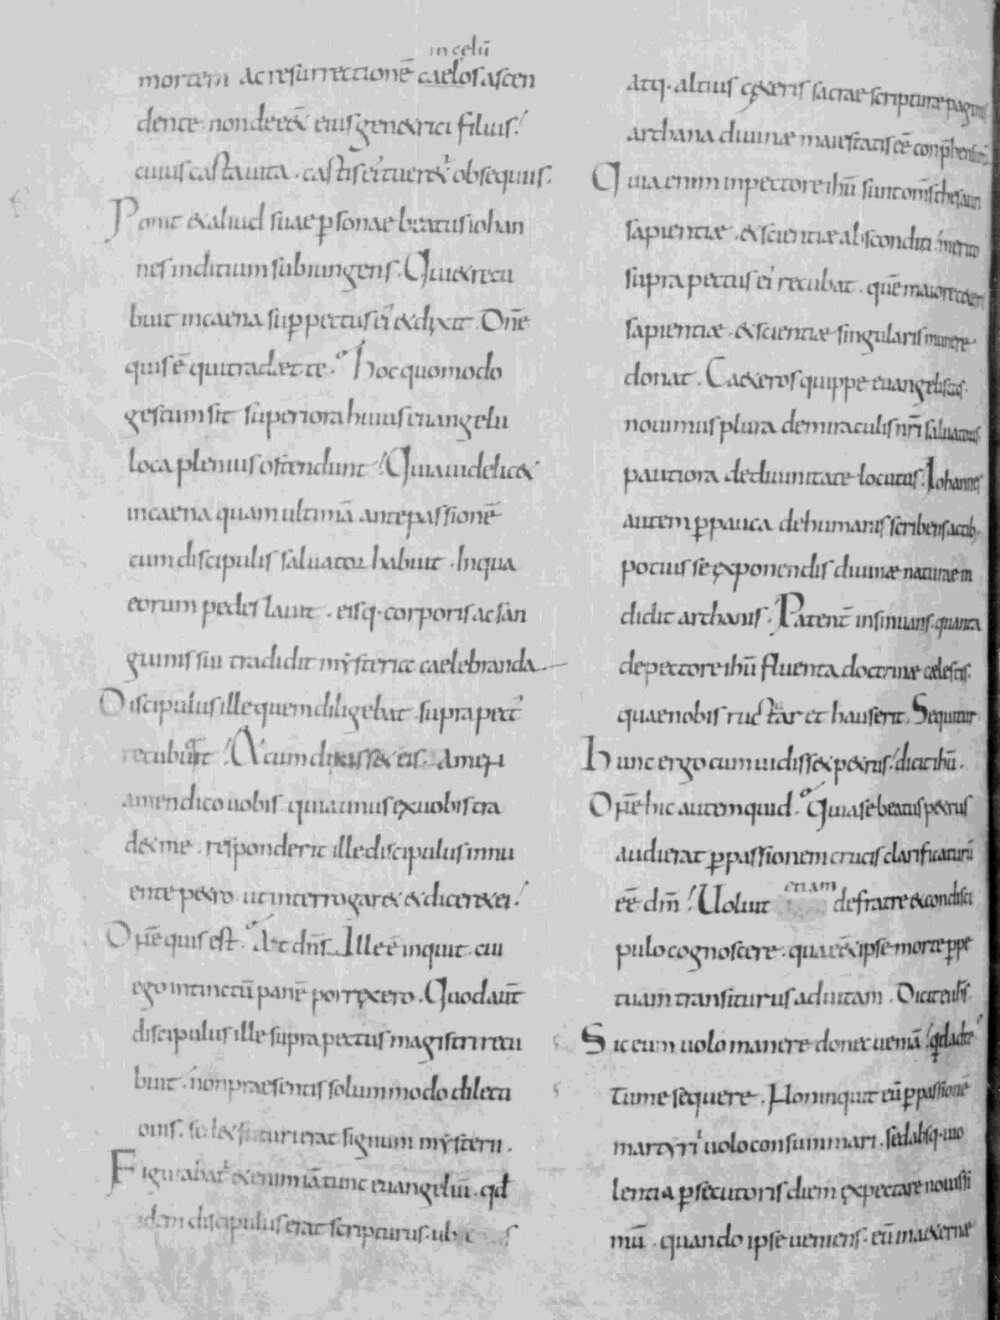 in celū
mortem ac resurrectionē caelos ascen
dente non deeēt eius genetrici filius!
cuius casta vita. castis ei' tueret' obsequiis.
Ponit et aliud suae psonae beatus iohan
nes inditium subiungens. Qui et recu
buit in caena sup pectus ei' et dixit. Dn̄e
quis ē qui tradaet te. Hoc quomodo
gestum sit superiora huius euangelii
loca plenius ostendunt! Quia uidelicet
in caena quam ultimā ante passionē
cum discipulis saluator habuit. In qua
eorum pedes lauit. eisq. corporis ac san
guinis sui tradidit mysteria caelebranda
Discipulus ille quem diligebat. supra pect'
recubuit! At cum dixisset eis. Amen
amen dico uobis quia unus ex uobis tra
det me. responderit ille discipulus innu
ente petro ut interrogaret et diceret ei!
Dn̄e quis est. At dn̄s. Ille ē inquit cui
ego intinctū panē porrexero. Quod aut̄
discipulus ille supra pectus magistri recu
buit. non praesentis solummodo dilecti
onis. sed et futuri erat signum mysterii.
Figurabat' etenim iā tunc euangeliū. qd
idem discipulus erat scripturus. ub
atq. altius ceteris sacrae scripturae paginis
archana diuinae maiestatis eē conp̄hensurū
Quia enim in pectore ihū sunt om̄s thesauri
sapientiae. et scientiae absconditi! merito
supra pectus ei' recubat. quē maiore ceteris
sapientiae. et scientiae singularis munere
donat. Caeteros quippe euangelistas.
nouimus plura de miraculis nr̄i saluatoris
pautiora de diuinitate locutus. Iohannes
autem p pauca de humanis scribens actib.
potius se exponendis diuinae naturae in
didit archanis. Patent' insinuans. quanta
de pectore ihū fluenta doctrinae caelestis.
quae nobis ructaret hauserit. Sequitur
Hunc ergo cum uidisset petrus! dicit ihū.
Dn̄e hic autem quid. Quia se beatus petrus
audierat p passionem crucis clarificaturū
eē dm̄! Uoluit etiam de fratre et condisci
pulo cognoscere. qua et ipse morte p̱pe
tuam transiturus ad uitam. Dicit ei ih̄s.
Sic eum uolo manere donec ueniā! qd ad te
tu me sequere. Non inquit eū p passionē
martyri' uolo consummari. sed absq. uio
lentia psecutoris diem expectare nouissi
mū. quando ipse ueniens. eū in aeternae